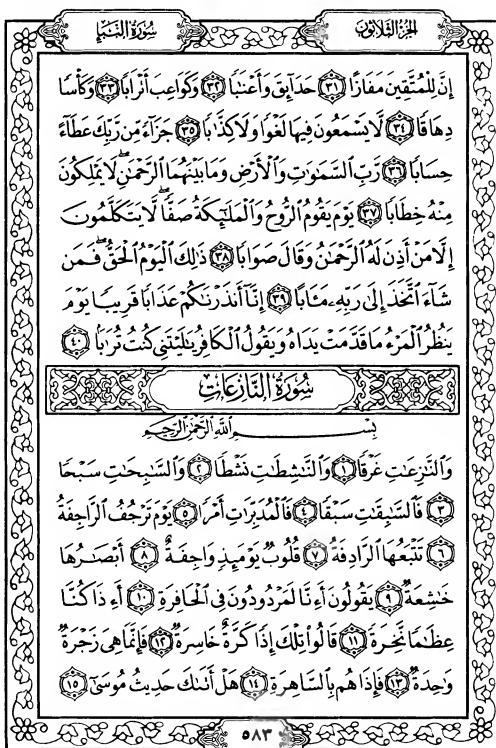 سُورَةُ النَّبَإِ
الجُزْءُ الثَّلاثُونَ
إِنَّ لِلْمُتَّقِينَ مَفَازًا ٣١ حَدَآئِقَ وَأَعْنَٰبًا ٣٢ وَكَوَاعِبَ أَتْرَابًا ٣٣ وَكَأْسًا
دِهَاقًا ٣٤ لَّا يَسْمَعُونَ فِيهَا لَغْوًا وَلَا كِذَّٰبًا ٣٥ جَزَآءً مِّن رَّبِّكَ عَطَآءً
حِسَابًا ٣٦ رَّبِّ السَّمَٰوَٰتِ وَالْأَرْضِ وَمَا بَيْنَهُمَا الرَّحْمَٰنِ ۖ لَا يَمْلِكُونَ
مِنْهُ خِطَابًا ٣٧ يَوْمَ يَقُومُ الرُّوحُ وَالْمَلَٰٓئِكَةُ صَفًّا ۖ لَّا يَتَكَلَّمُونَ
إِلَّا مَنْ أَذِنَ لَهُ الرَّحْمَٰنُ وَقَالَ صَوَابًا ٣٨ ذَٰلِكَ الْيَوْمُ الْحَقُّ ۖ فَمَن
شَآءَ اتَّخَذَ إِلَىٰ رَبِّهِۦ مَـَٔابًا ٣٩ إِنَّآ أَنذَرْنَٰكُمْ عَذَابًا قَرِيبًا يَوْمَ
يَنظُرُ الْمَرْءُ مَا قَدَّمَتْ يَدَاهُ وَيَقُولُ الْكَافِرُ يَٰلَيْتَنِي كُنتُ تُرَٰبًا ٤٠
سُورَةُ النَّازِعَاتِ
بِسْمِ اللَّهِ الرَّحْمَٰنِ الرَّحِيمِ
وَالنَّٰزِعَٰتِ غَرْقًا ١ وَالنَّٰشِطَٰتِ نَشْطًا ٢ وَالسَّٰبِحَٰتِ سَبْحًا
٣ فَالسَّٰبِقَٰتِ سَبْقًا ٤ فَالْمُدَبِّرَٰتِ أَمْرًا ٥ يَوْمَ تَرْجُفُ الرَّاجِفَةُ
٦ تَتْبَعُهَا الرَّادِفَةُ ٧ قُلُوبٌ يَوْمَئِذٍ وَاجِفَةٌ ٨ أَبْصَٰرُهَا
خَٰشِعَةٌ ٩ يَقُولُونَ أَءِنَّا لَمَرْدُودُونَ فِي الْحَافِرَةِ ١٠ أَءِذَا كُنَّا
عِظَٰمًا نَّخِرَةً ١١ قَالُوا تِلْكَ إِذًا كَرَّةٌ خَاسِرَةٌ ١٢ فَإِنَّمَا هِيَ زَجْرَةٌ
وَٰحِدَةٌ ١٣ فَإِذَا هُم بِالسَّاهِرَةِ ١٤ هَلْ أَتَىٰكَ حَدِيثُ مُوسَىٰٓ ١٥
٥٨٣